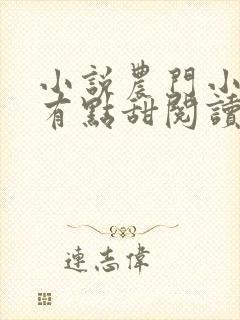 小說農門小
有點甜閱讀
連志偉